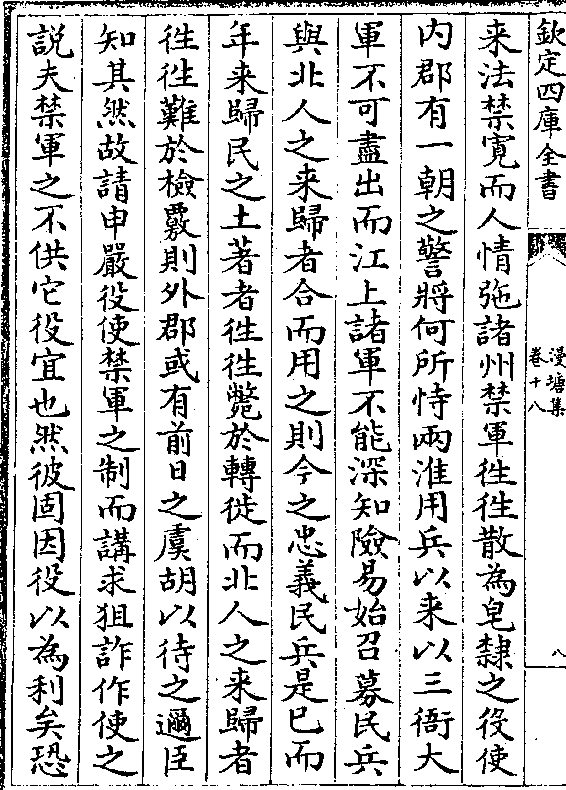 欽定四庫全書
漫塘集
卷十八
八
来法禁寛而人情弛諸州禁軍徃徃散為皂隸之役使
内郡有一朝之警將何所恃兩淮用兵以来以三衙大
軍不可盡出而江上諸軍不能深知險易始召募民兵
與北人之来歸者合而用之則今之忠義民兵是已而
年来歸民之土著者徃徃斃於轉徙而北人之来歸者
徃徃難於檢覈則外郡或有前日之虞胡以待之邇臣
知其然故請申嚴役使禁軍之制而講求狙詐作使之
説夫禁軍之不供它役宜也然彼固因役以為利矣恐